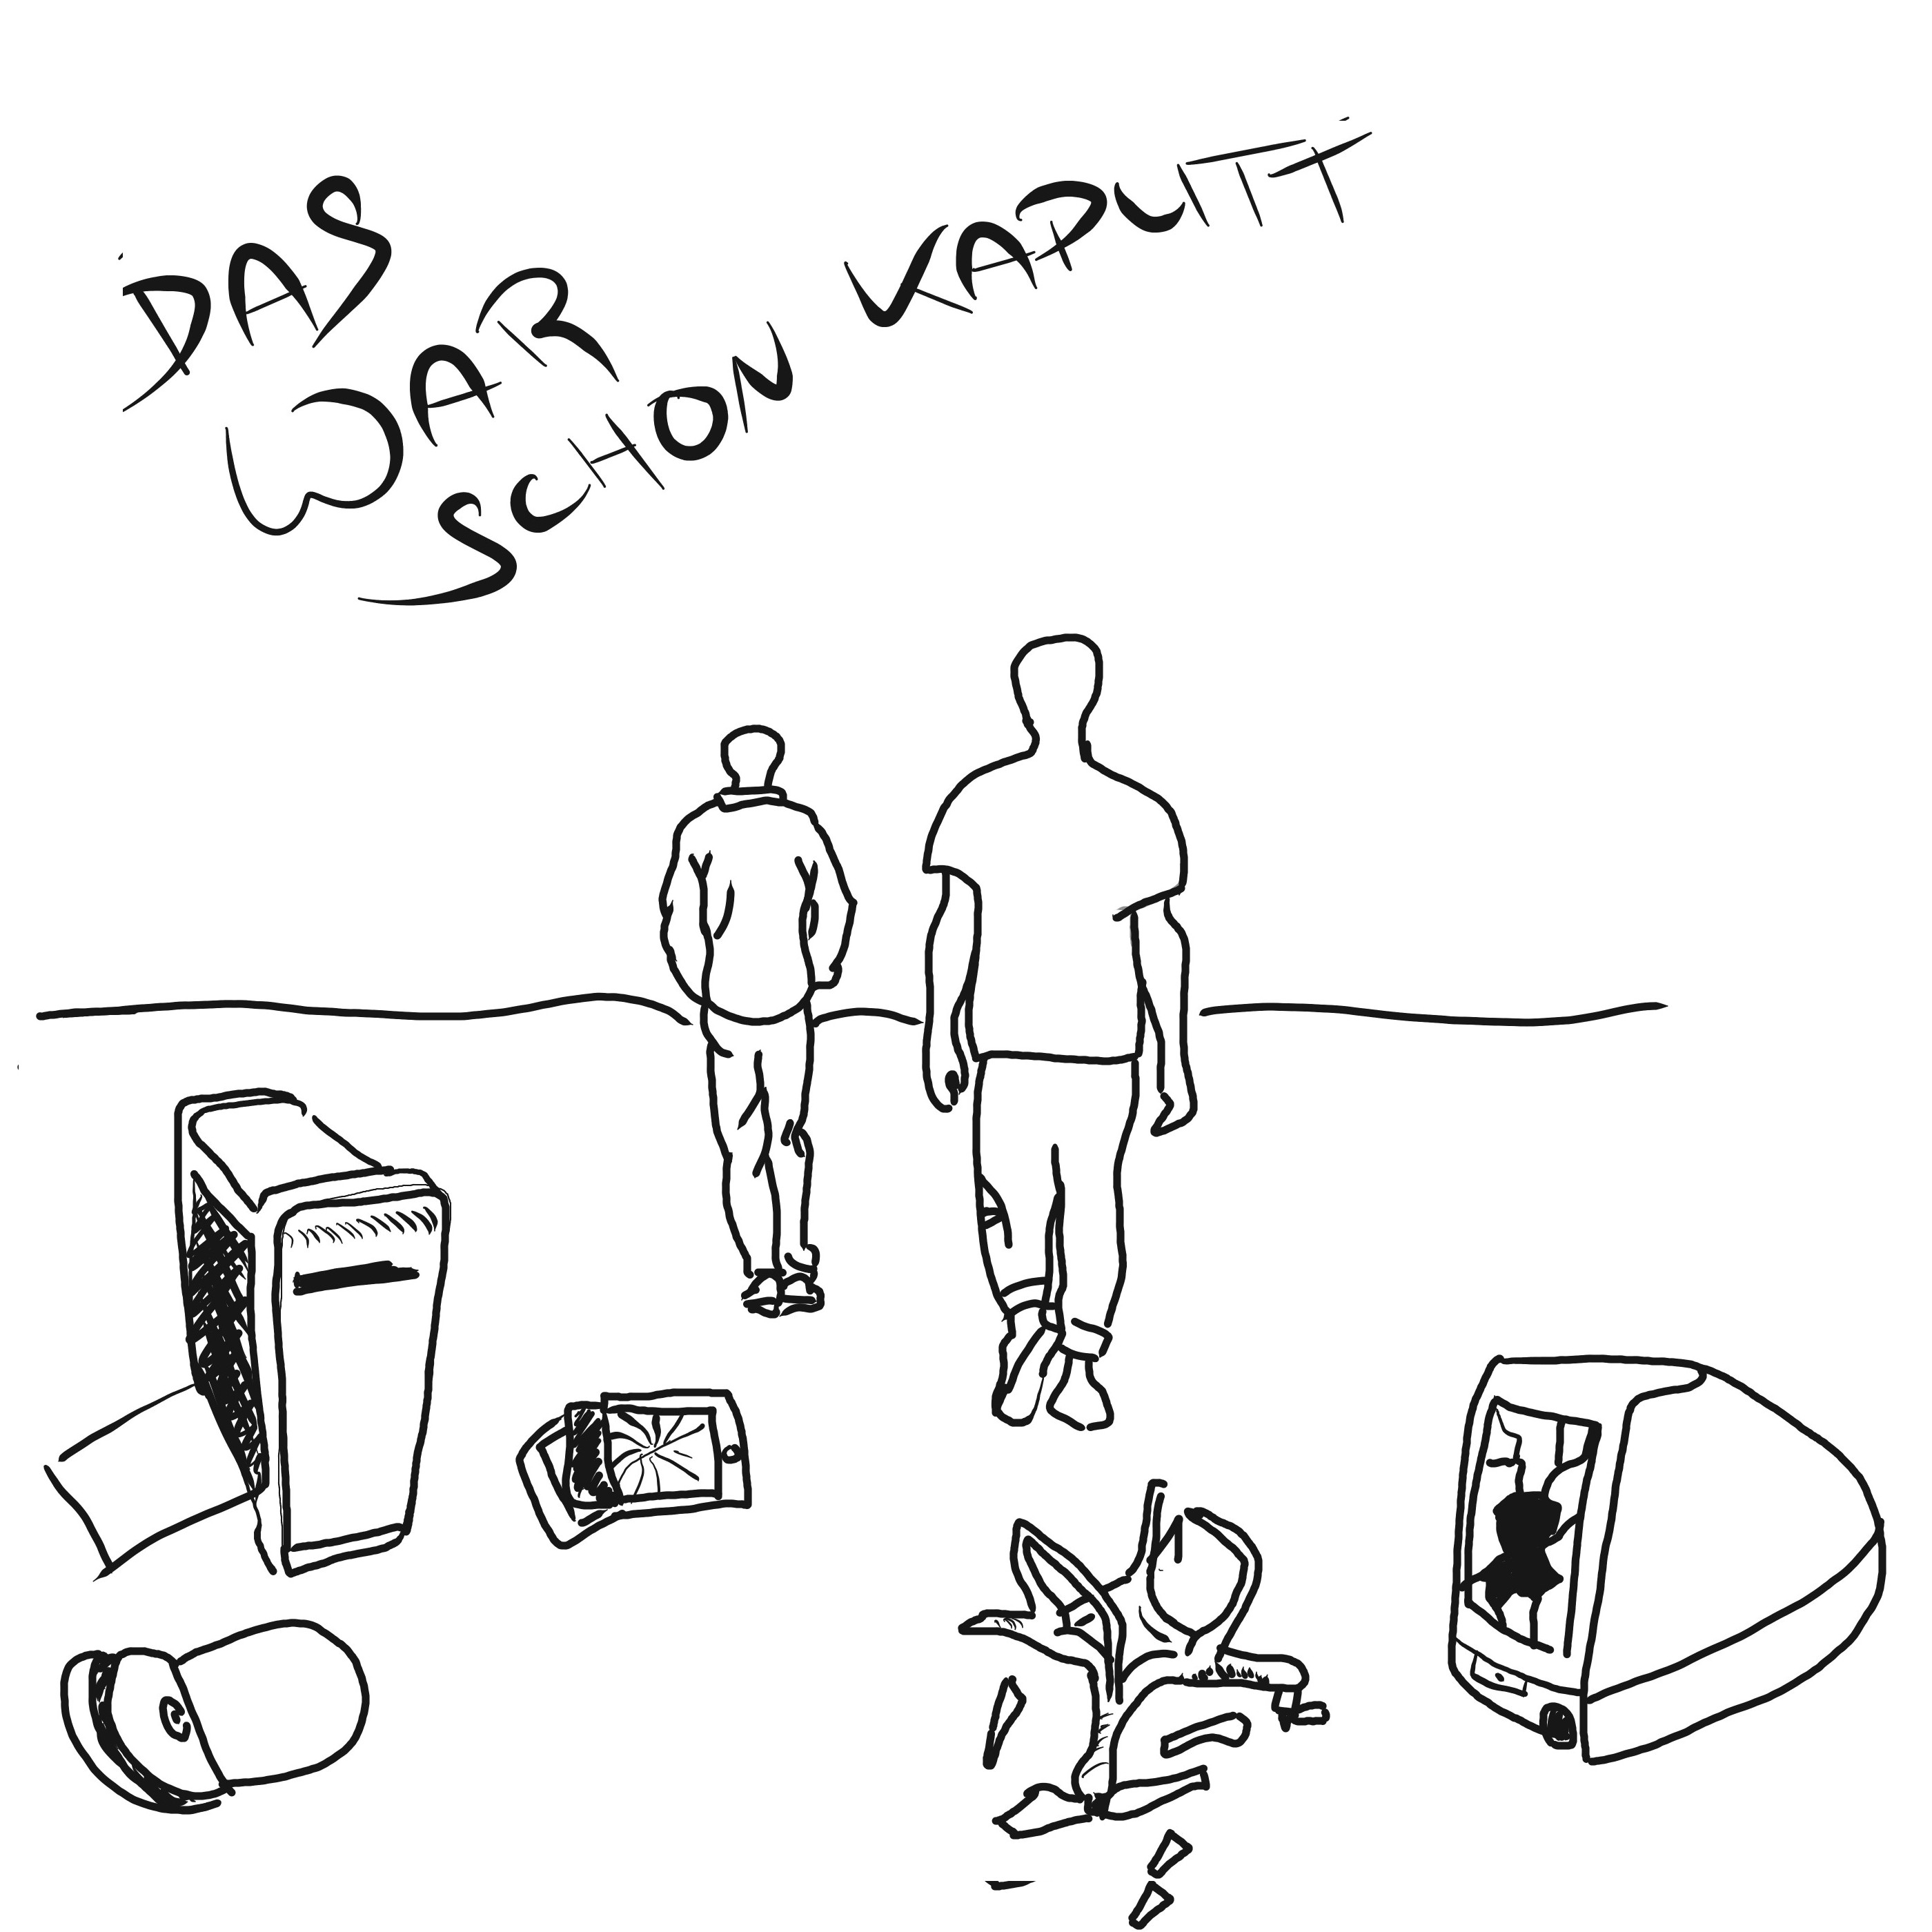 DAS
WAR
SCHON
KAPUTT